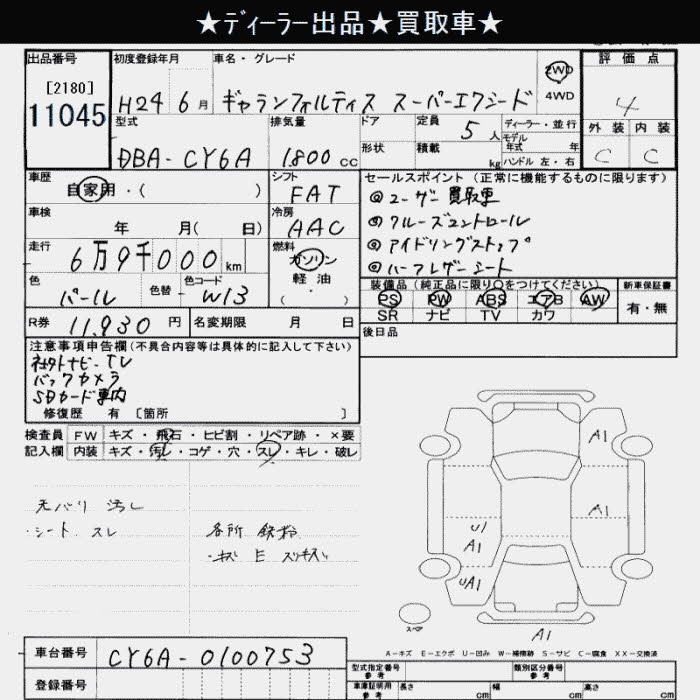 ★ディーラー出品★買取車★
出品番号 初度登録年月 車名・グレード 2WD 4WD 評価点
[2180]
11045
H24 6月 ギャランフォルティス スーパーエクシード 4
型式 排気量 ドア 定員 5人 ディーラー・並行 外装 内装
DBA-CY6A 1.800cc 形状 積載 kg モデル年式 年 ハンドル 左・右 C C
車歴 シフト セールスポイント(正常に機能するものに限ります)
自家用・( ) FAT ◎ユーザー買取車
車検 冷房 ◎クルーズコントロール
年 月( 日) AAC ◎アイドリングストップ
走行 6万9千000km 燃料 ガソリン 軽油 ( ・ ) ◎ハーフレザーシート
色 パール 色替 色コード W13
装備品(純正品に限り○をつけてください) 新車保証書
PS PW ABS エアB AW 有・無
SR ナビ TV カワ
R券 11.930円 名変期限 月 日 後日品
注意事項申告欄(不具合内容等は具体的に記入して下さい)
社外ナビ-TV
バックカメラ
SDカード車内
修復歴 有 [箇所 ]
検査員 FW キズ・飛石・ヒビ割・リペア跡・×要
記入欄 内装 キズ・汚レ・コゲ・穴・スレ・キレ・破レ
天バリ 汚レ
・シート スレ 各所 鉄粉
・キズ E スリキズ
A1
A1
U1
A1
UA1
A1
スペア
A-キズ E-エクボ U-凹み W-補修跡 S-サビ C-腐食 XX-交換済
車台番号 CY6A-0100753
登録番号
型式指定番号 参考 類別区分番号 参考
車庫証明用 参考 長さ cm 幅 cm 高さ cm